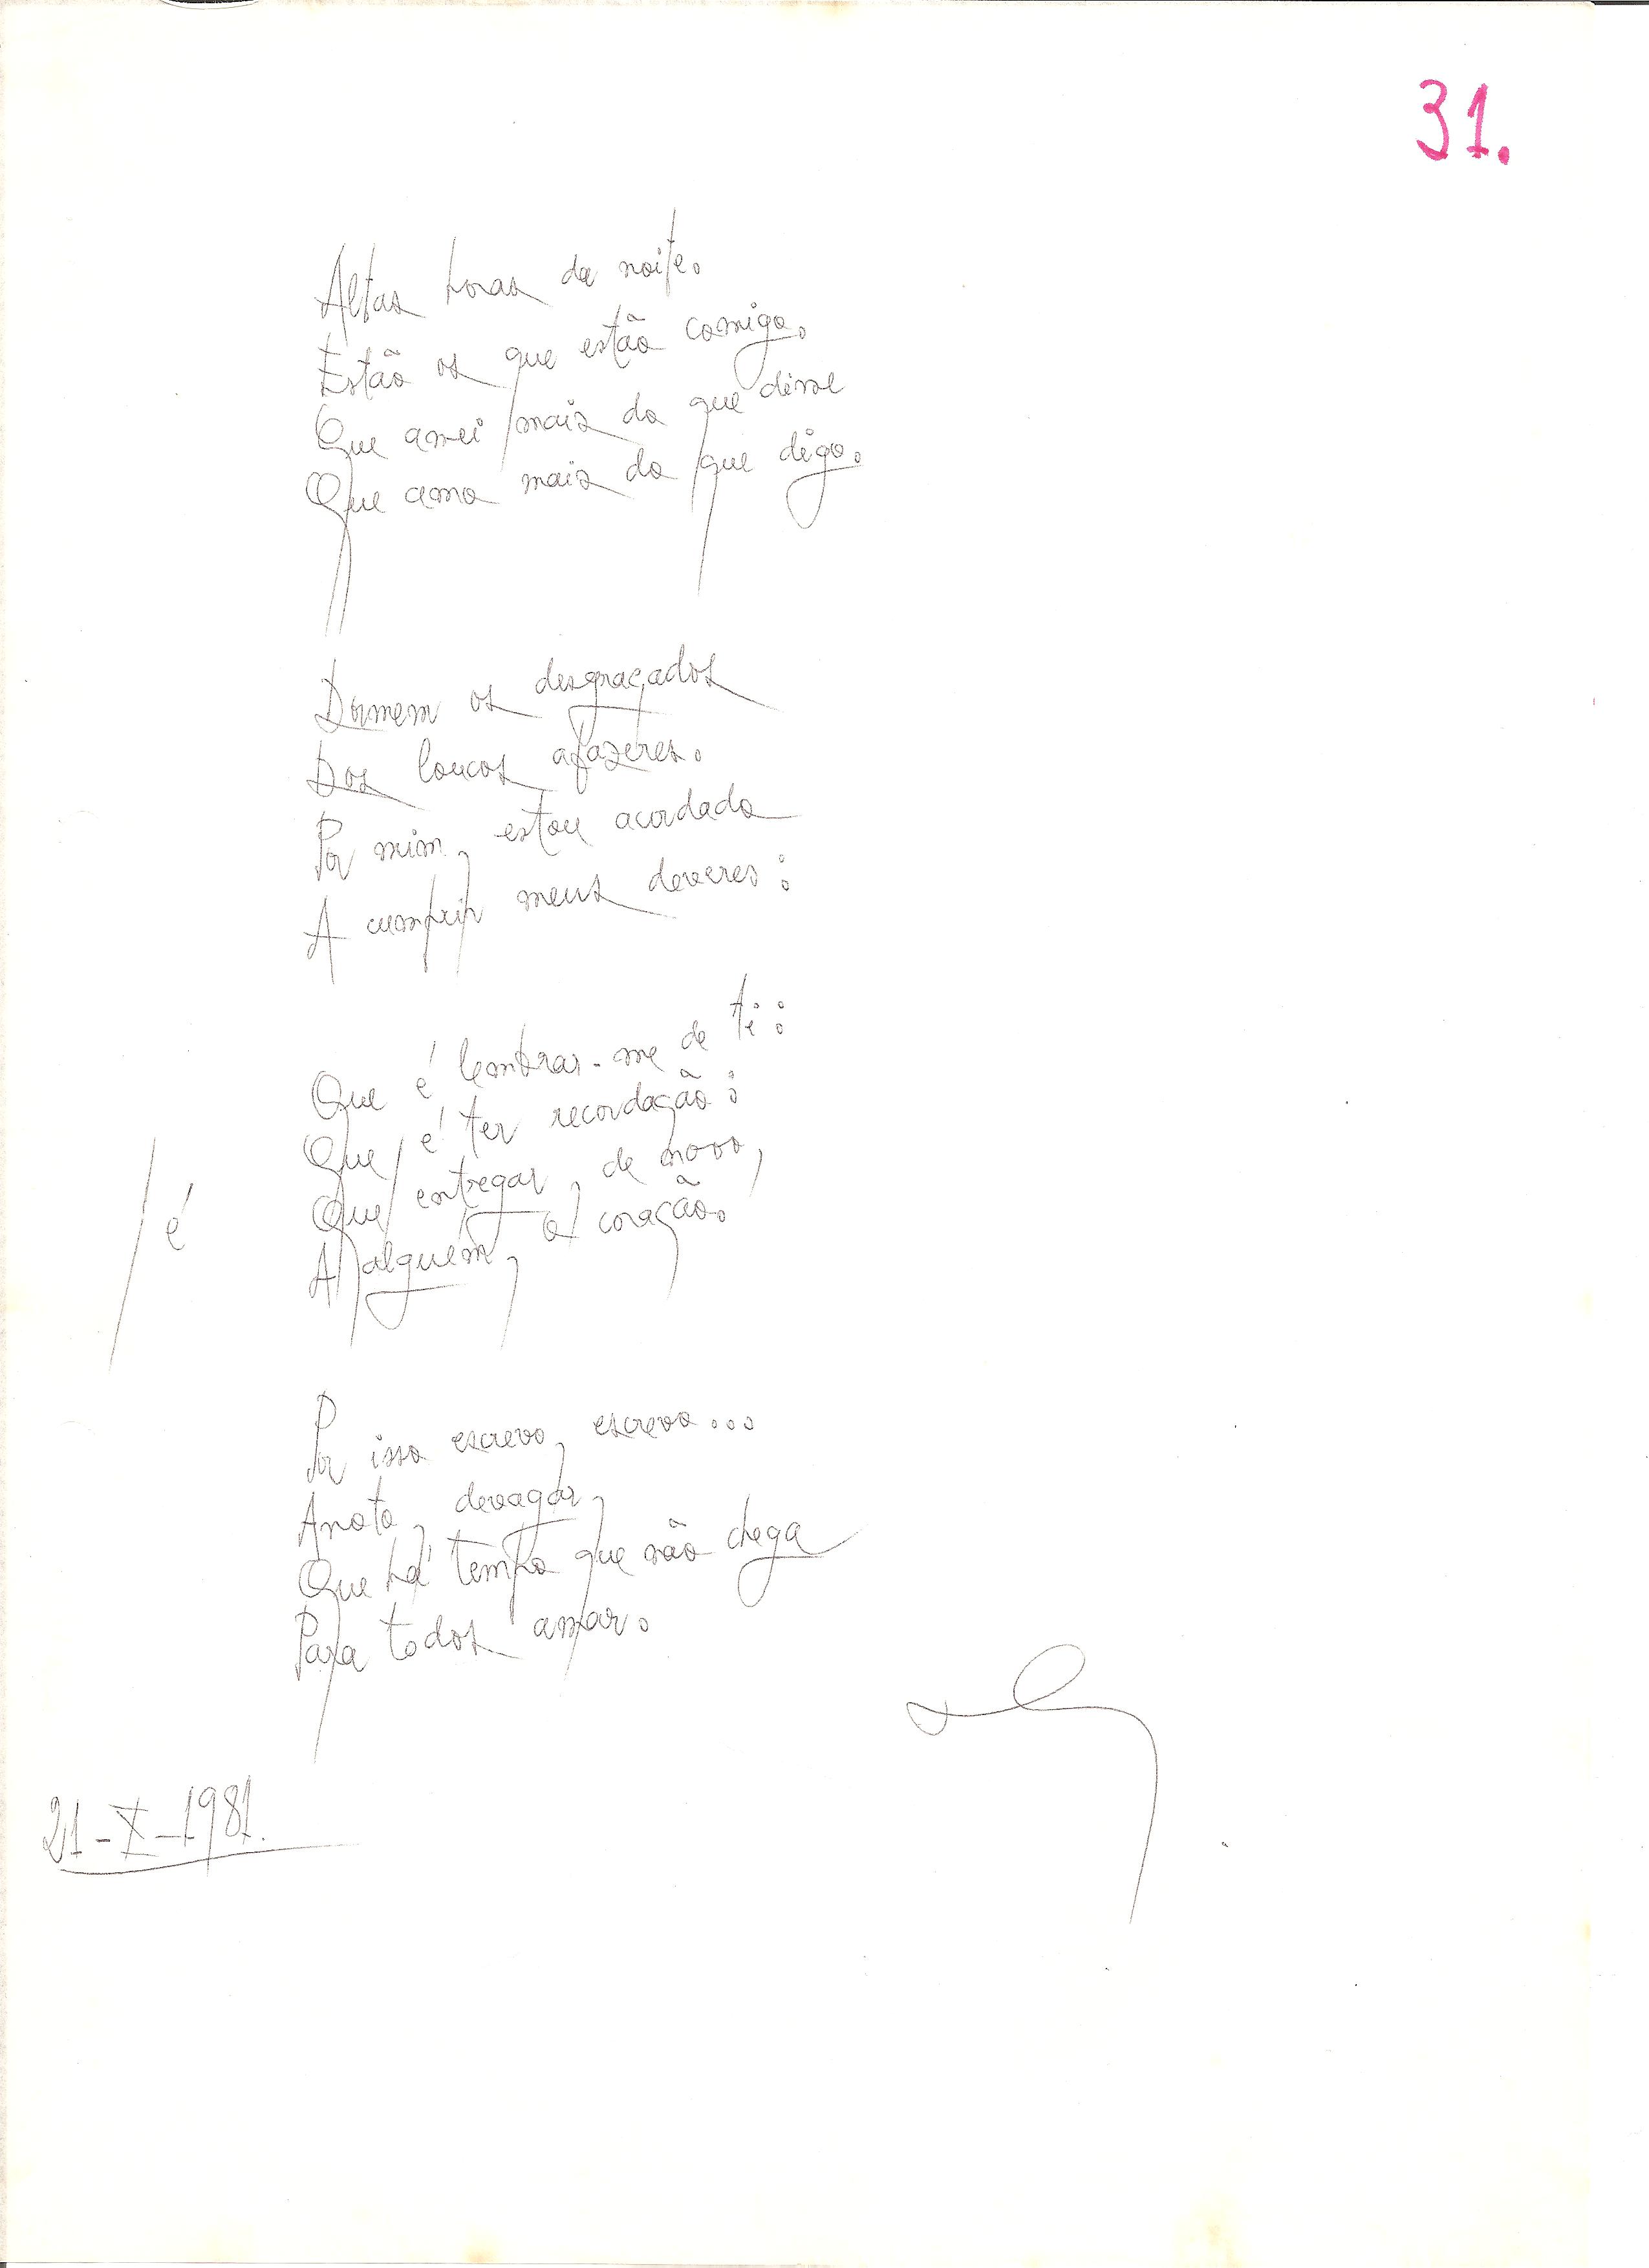 31.
Altas horas da noite.
Estão os que estão comigo.
Que amei mais do que disse
Que amo mais do que digo.
Dormem os desgraçados
Dos loucos afazeres.
Por mim, estou acordado
A cumprir meus deveres:
Que é lembrar-me de ti:
Que é ter recordação:
Que / entregar, de novo,
/ é
A alguém, o coração.
Por isso escrevo, escrevo...
Anoto, devagar,
Que há tempo que não chega
Para todos amar.
21-X-1981.